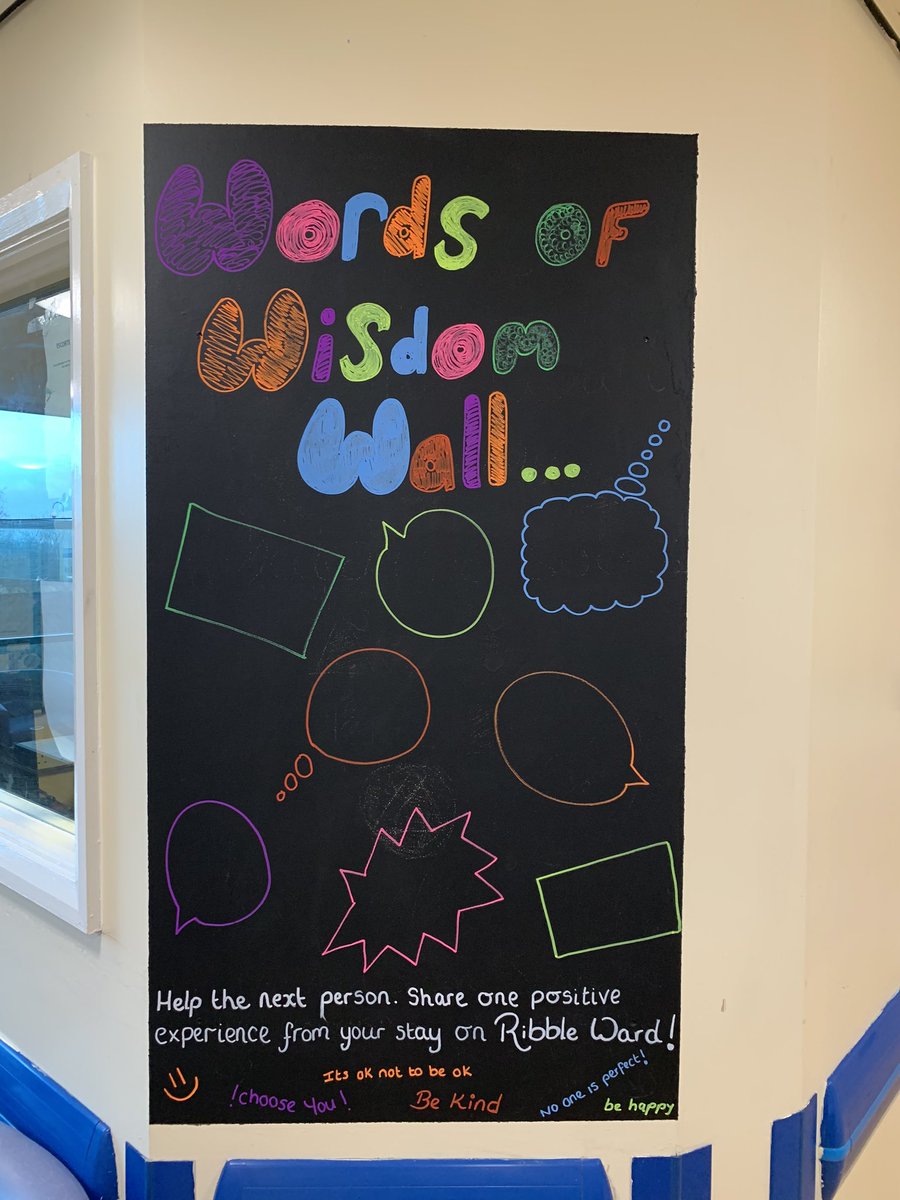 Words of
Wisdom
Wall...
Help the next person. Share one positive
experience from your stay on Ribble Ward!
Its ok not to be ok
!choose you!
Be Kind
No one is perfect!
be happy